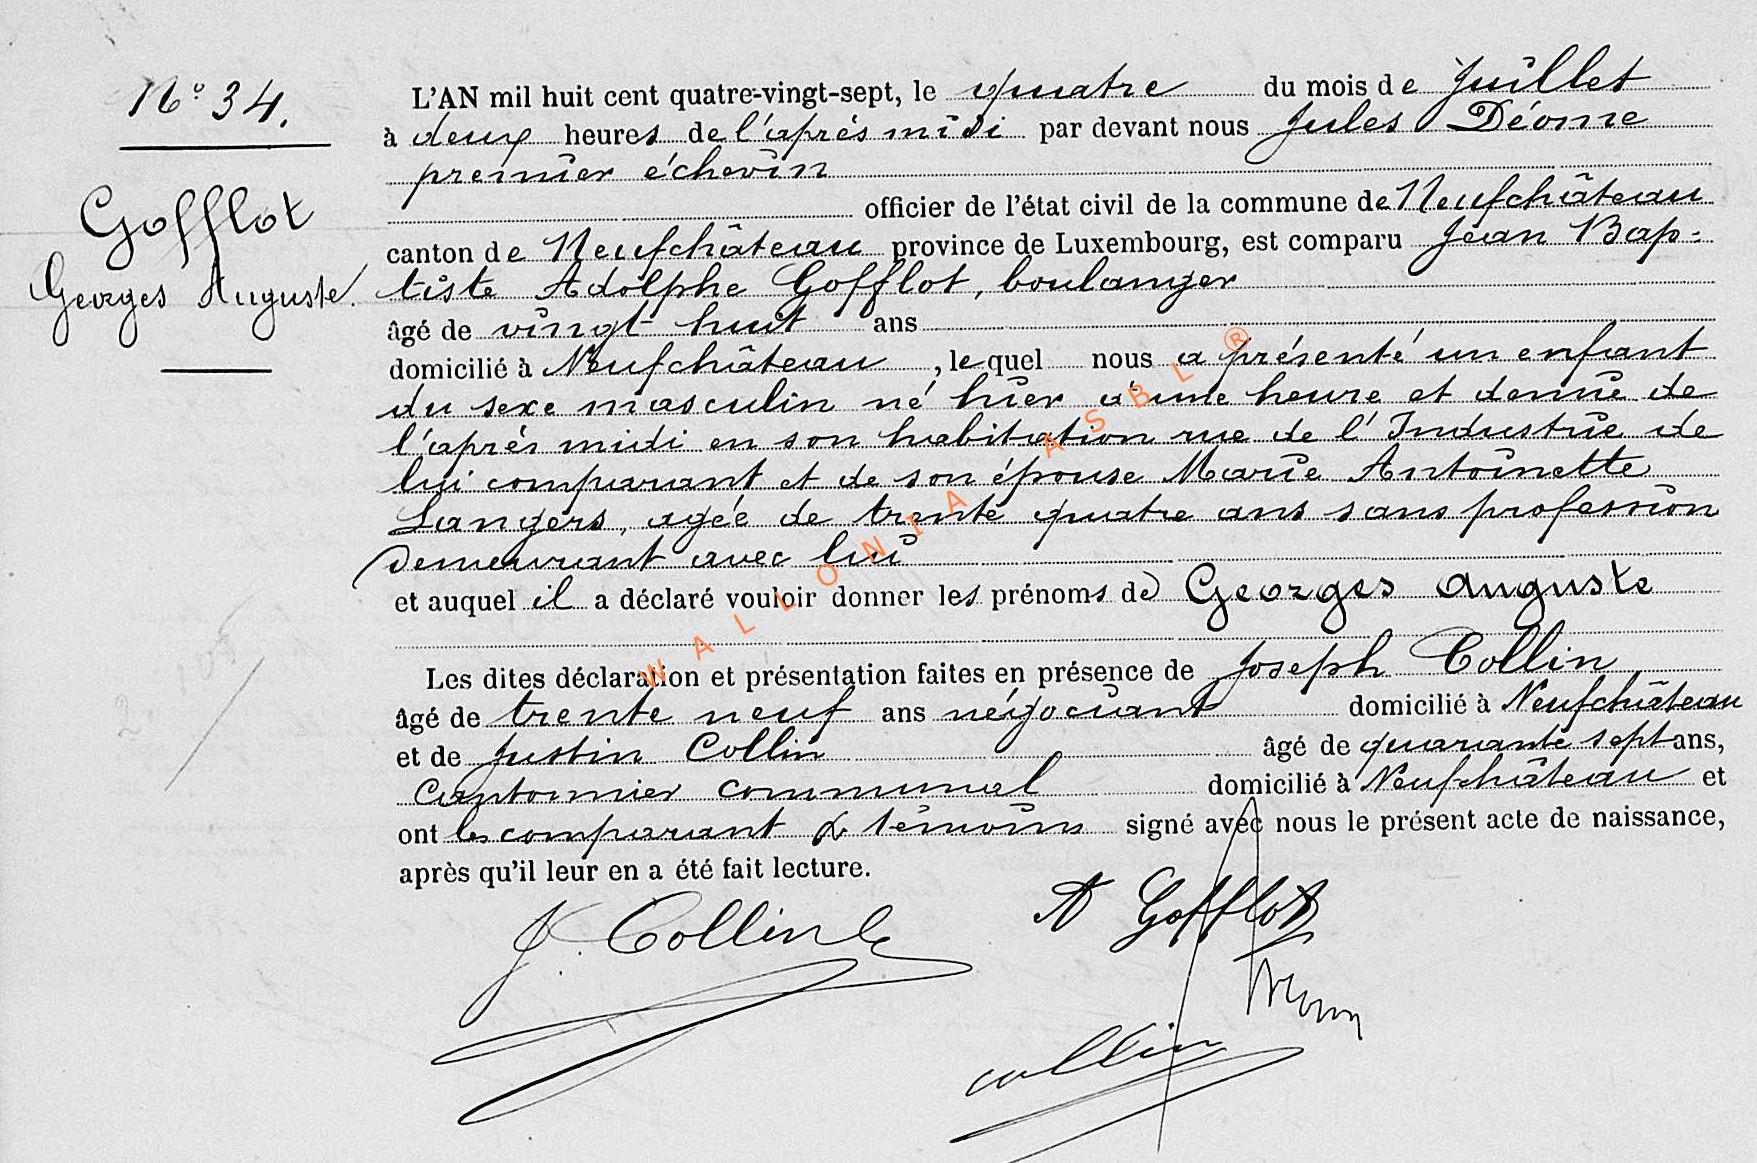 N° 34.
Gofflot
Georges Auguste.
L'AN mil huit cent quatre-vingt-sept, le quatre du mois de Juillet
à deux heures de l'après midi par devant nous Jules Déome
premier échevin
officier de l'état civil de la commune de Neufchâteau
canton de Neufchâteau province de Luxembourg, est comparu Jean Bap-
tiste Adolphe Gofflot, boulanger
âgé de vingt huit ans
domicilié à Neufchâteau, lequel nous a présenté un enfant
du sexe masculin né hier à une heure et demie de
l'après midi en son habitation rue de l'Industrie de
lui comparant et de son épouse Marie Antoinette
Langers, agée de trente quatre ans sans profession
demeurant avec lui
et auquel il a déclaré vouloir donner les prénoms de Georges Auguste
Les dites déclaration et présentation faites en présence de Joseph Collin,
âgé de trente neuf ans négociant domicilié à Neufchâteau
et de Justin Collin âgé de quarante sept ans,
Cantonnier communal domicilié à Neufchâteau et
ont les comparant & témoins signé avec nous le présent acte de naissance,
après qu'il leur en a été fait lecture.
J. Collin
A Gofflot
collin
WALLONIA ASBL ®